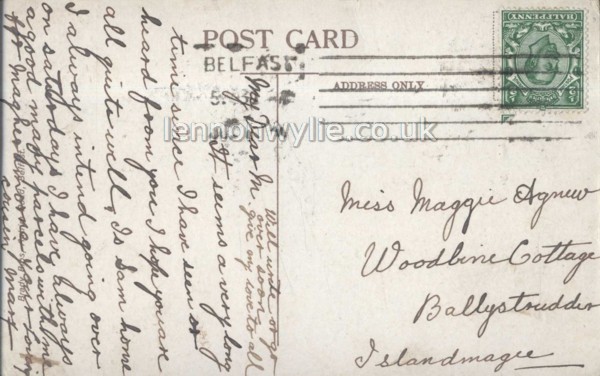 POST CARD
BELFAST
ADDRESS ONLY
HALFPENNY
lennonwylie.co.uk
Miss Maggie Agnew
Woodbine Cottage
Ballystrudder
Islandmagee
My Dear M
It seems a very long
time since I have seen or
heard from you I hope you are
all quite well, Is Sam home
I always intend going over
on Saturdays I have always
a good many parcels with me
Maghera
ever loving
cousin Mary
Will write or go
over soon
give my love to all